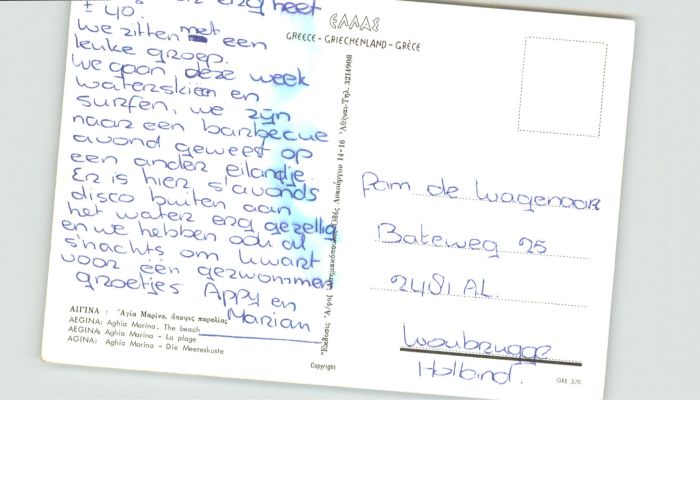 heet
± 40.
we zitten met een
leuke groep.
we gaan deze week
waterskiën en
surfen, we zijn
naar een barbecue
avond geweest op
een ander eilandje.
Er is hier s'avonds
disco buiten aan
het water erg gezellig
en we hebben ook al
s'nachts om kwart
voor één gezwommen
groetjes Appy en
Marian
ΑΙΓΙΝΑ : Ἁγία Μαρίνα. ἄποψις παραλίας
AEGINA: Aghia Marina. The beach
AEGINA: Aghia Marina - La plage
AGINA: Aghia Marina - Die Meereskuste
14-16 Ἀθῆναι-Τηλ. 3214908
Copyright
ΕΛΛΑΣ
GREECE - GRIECHENLAND - GRÈCE
Pam de Wagenaar
Bateweg 25
2481 AL.
Woubrugge
Holland.
GRE 570